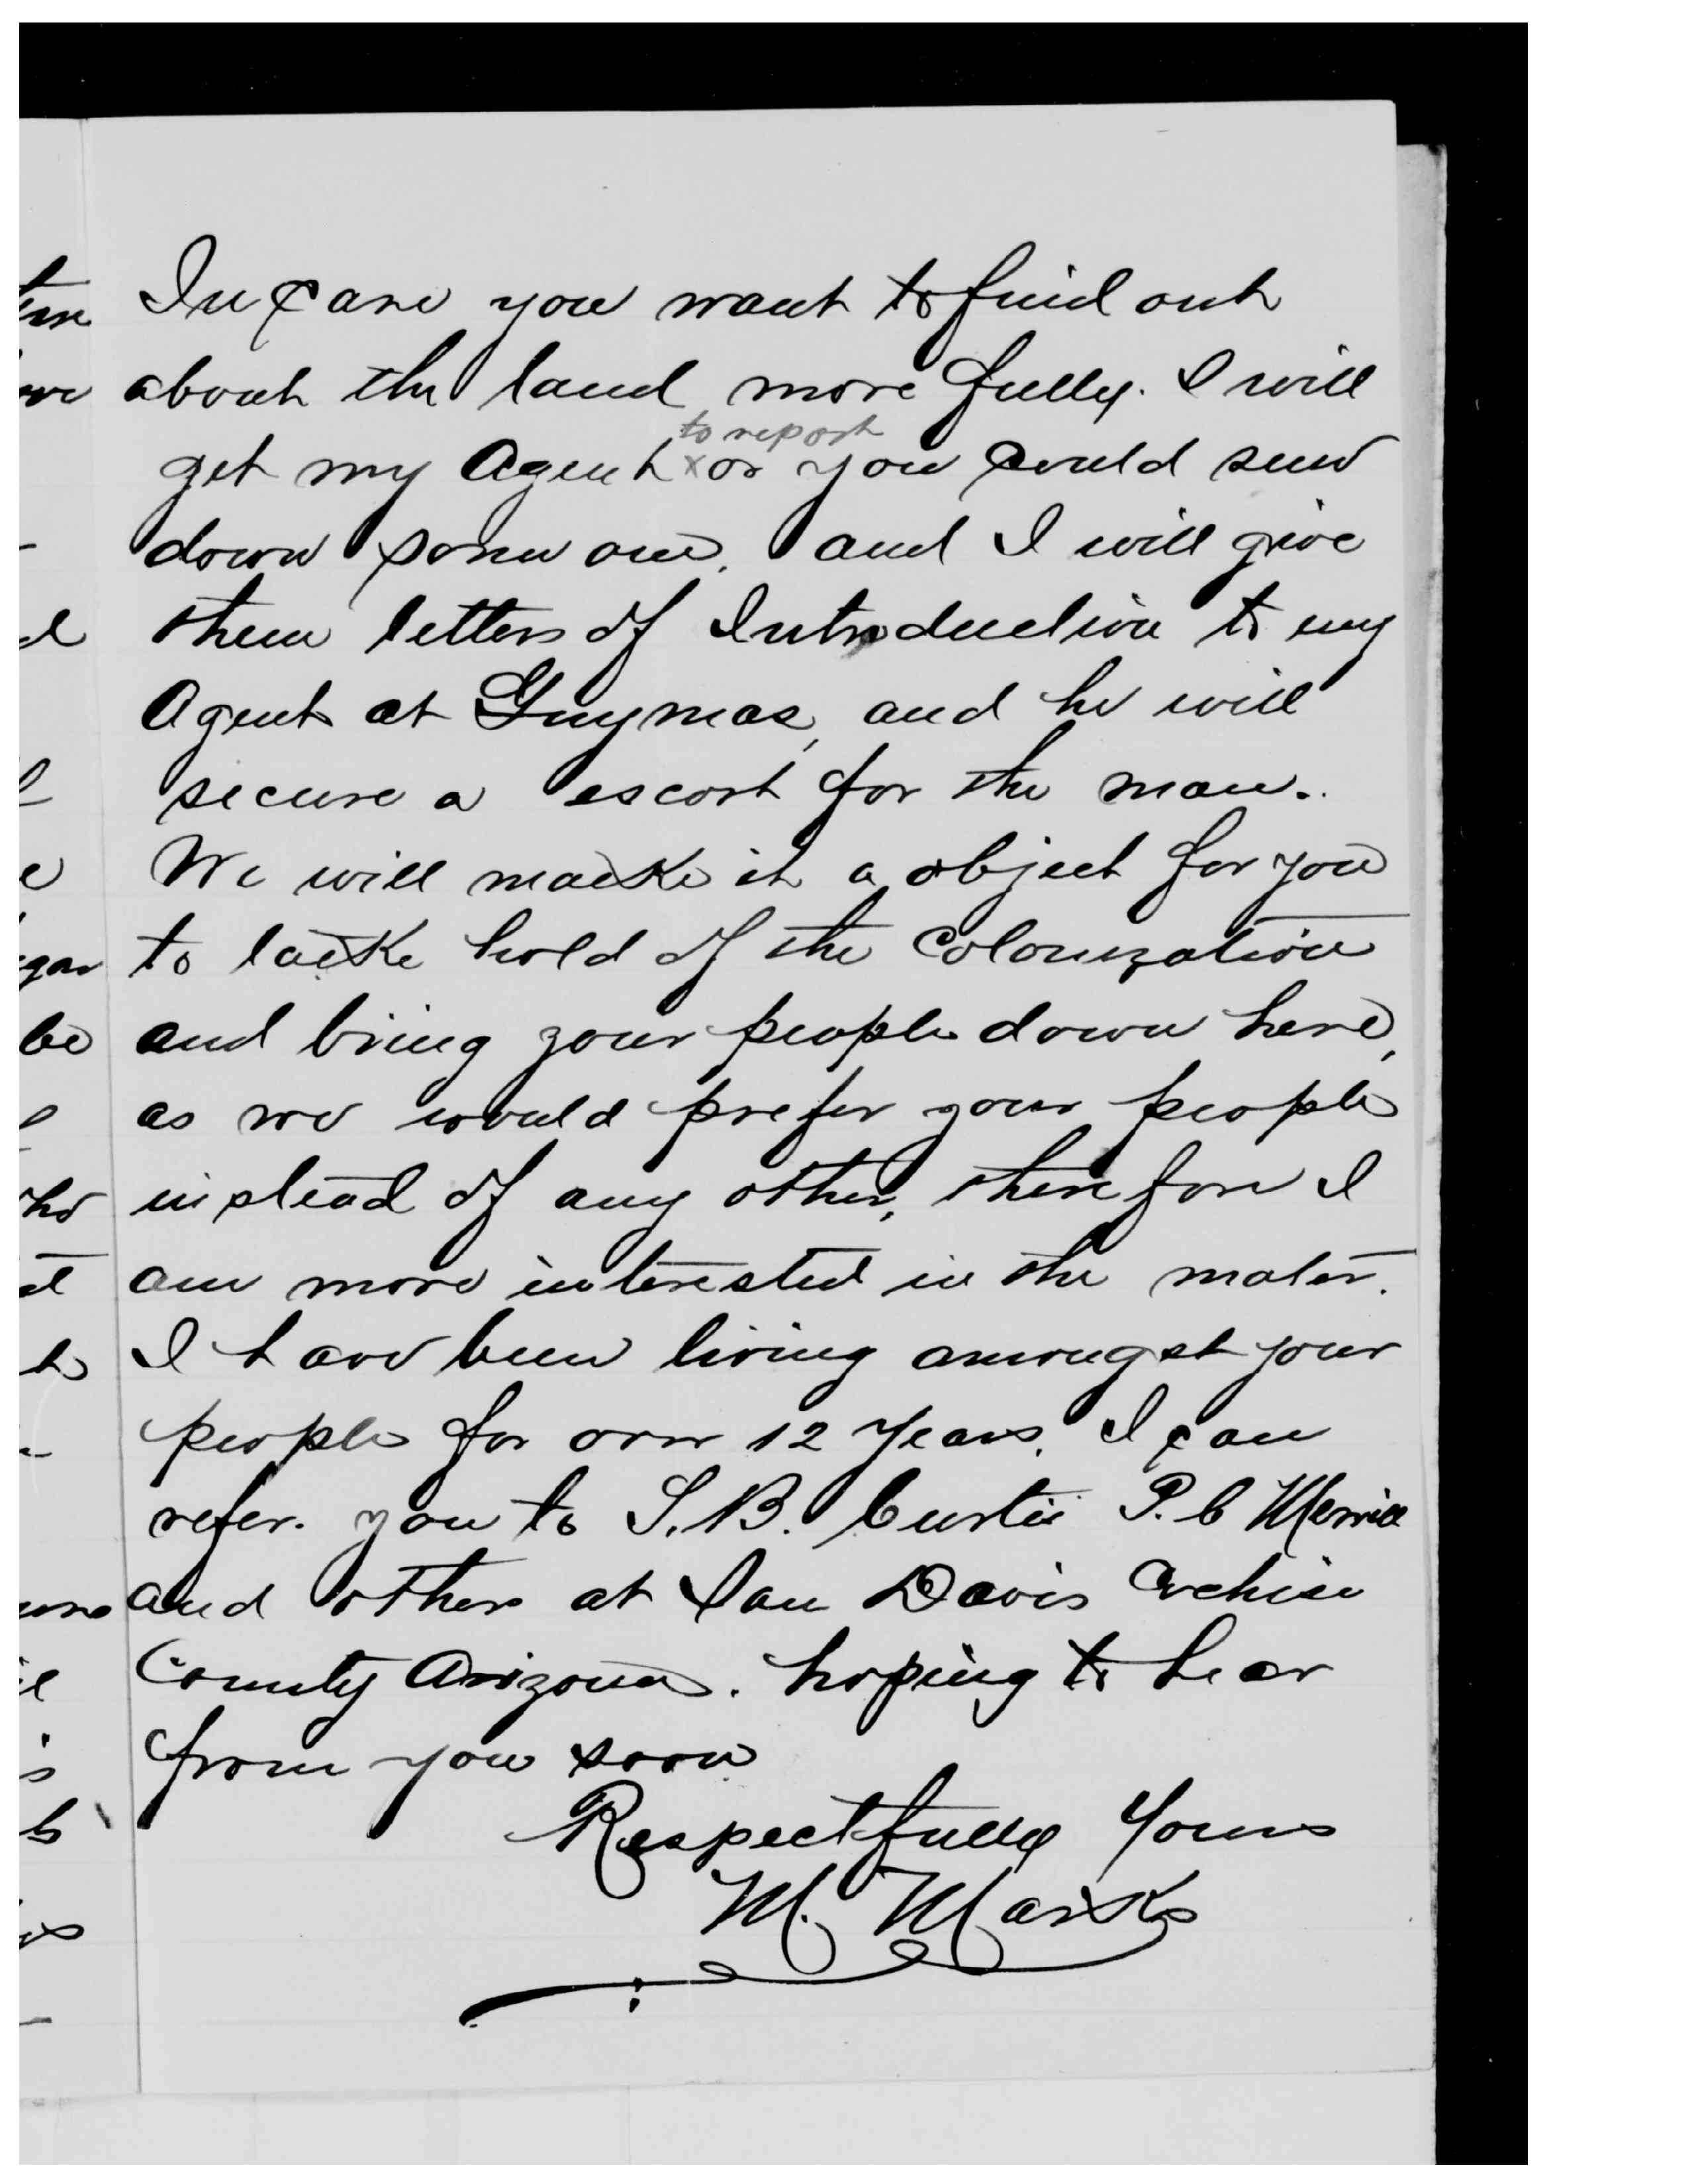 In Case you want to find out
about the land more fully. I will
to report
get my Agent x or you Could send
down some one, and I will give
them letters of Introduction to my
Agent at Guymas, and he will
secure a escort for the man.
We will make it a object for you
to take hold of the Colonization
and bring your people down here,
as we would prefer your people
instead of any other, therefore I
am more interested in the mater.
I have been living amongst your
people for over 12 Years. I can
refer you to S. B. Curtis P. C Merrill
and others at San Davis Cochise
County Arizona. hoping to hear
from you soon
Respectfully Yours
M. Marks